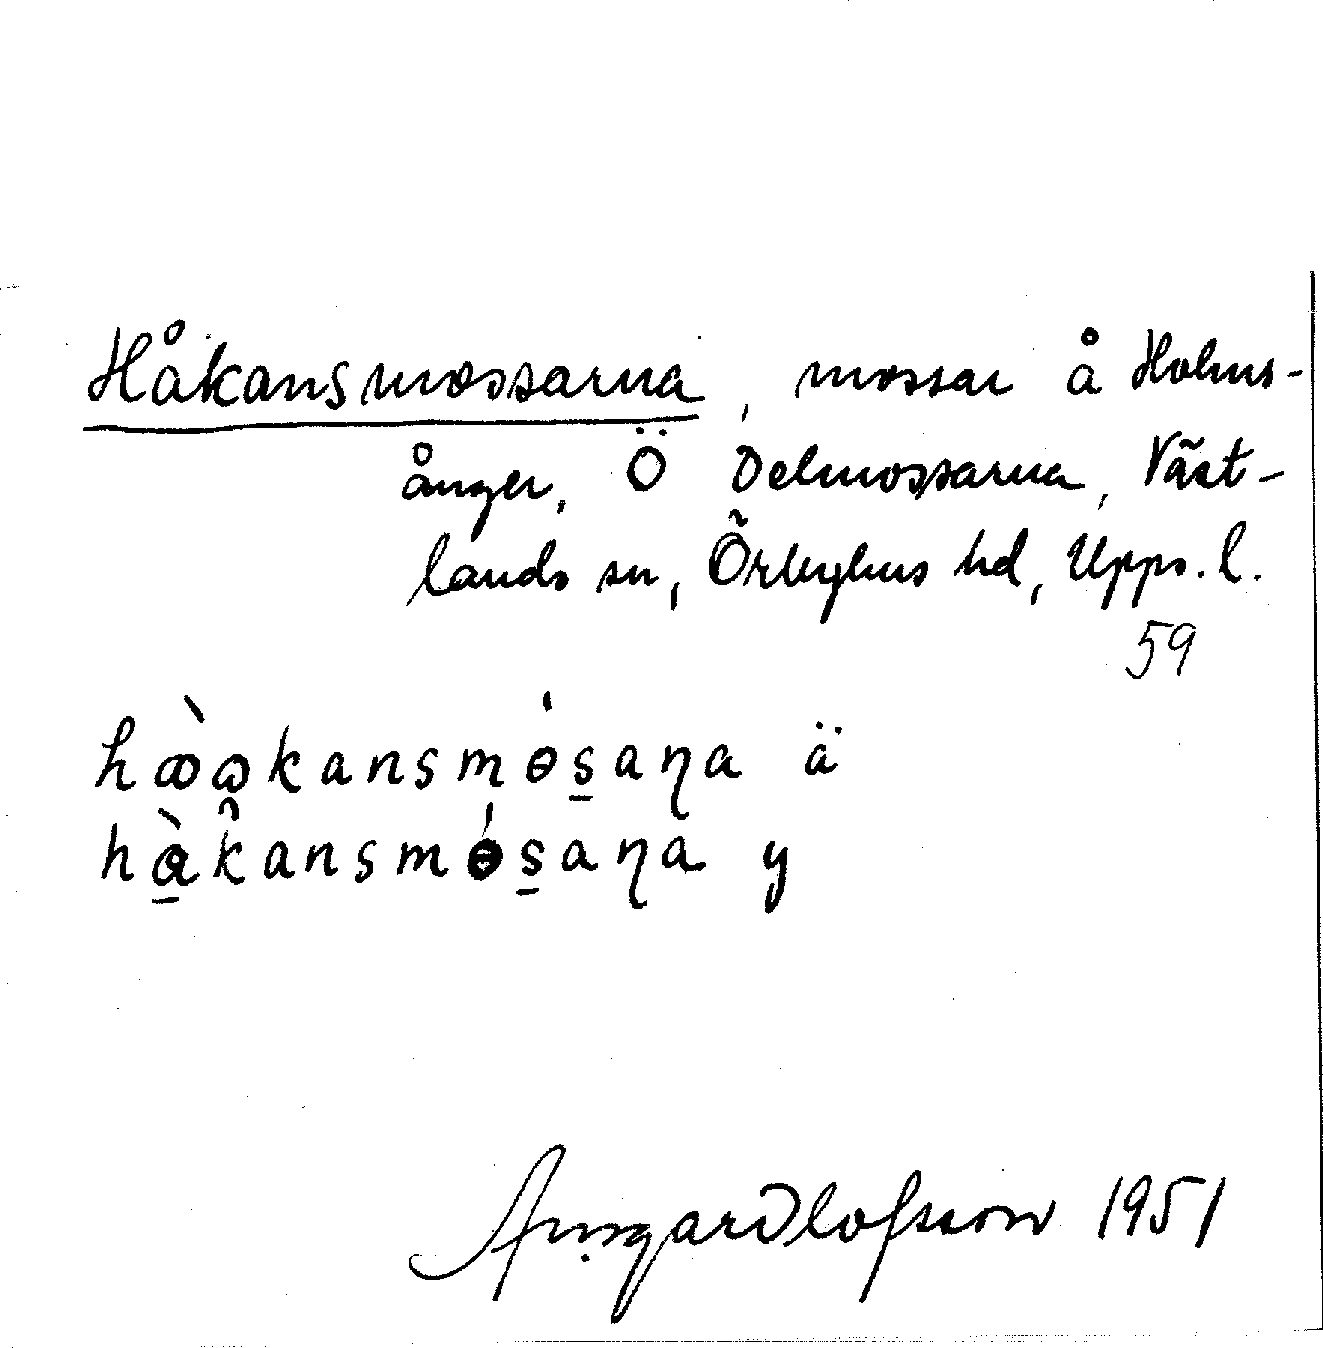 Håkansmossarna, mossar å Holms-
ånger, Ö Delmossarna, Väst-
lands sn, Örbyhus hd, Upps. l.
59
hꝏ̀kansmɵ́s̲aɳa ä
hàk̑ansmɵ́s̲aɳa y
Olofsson 1951